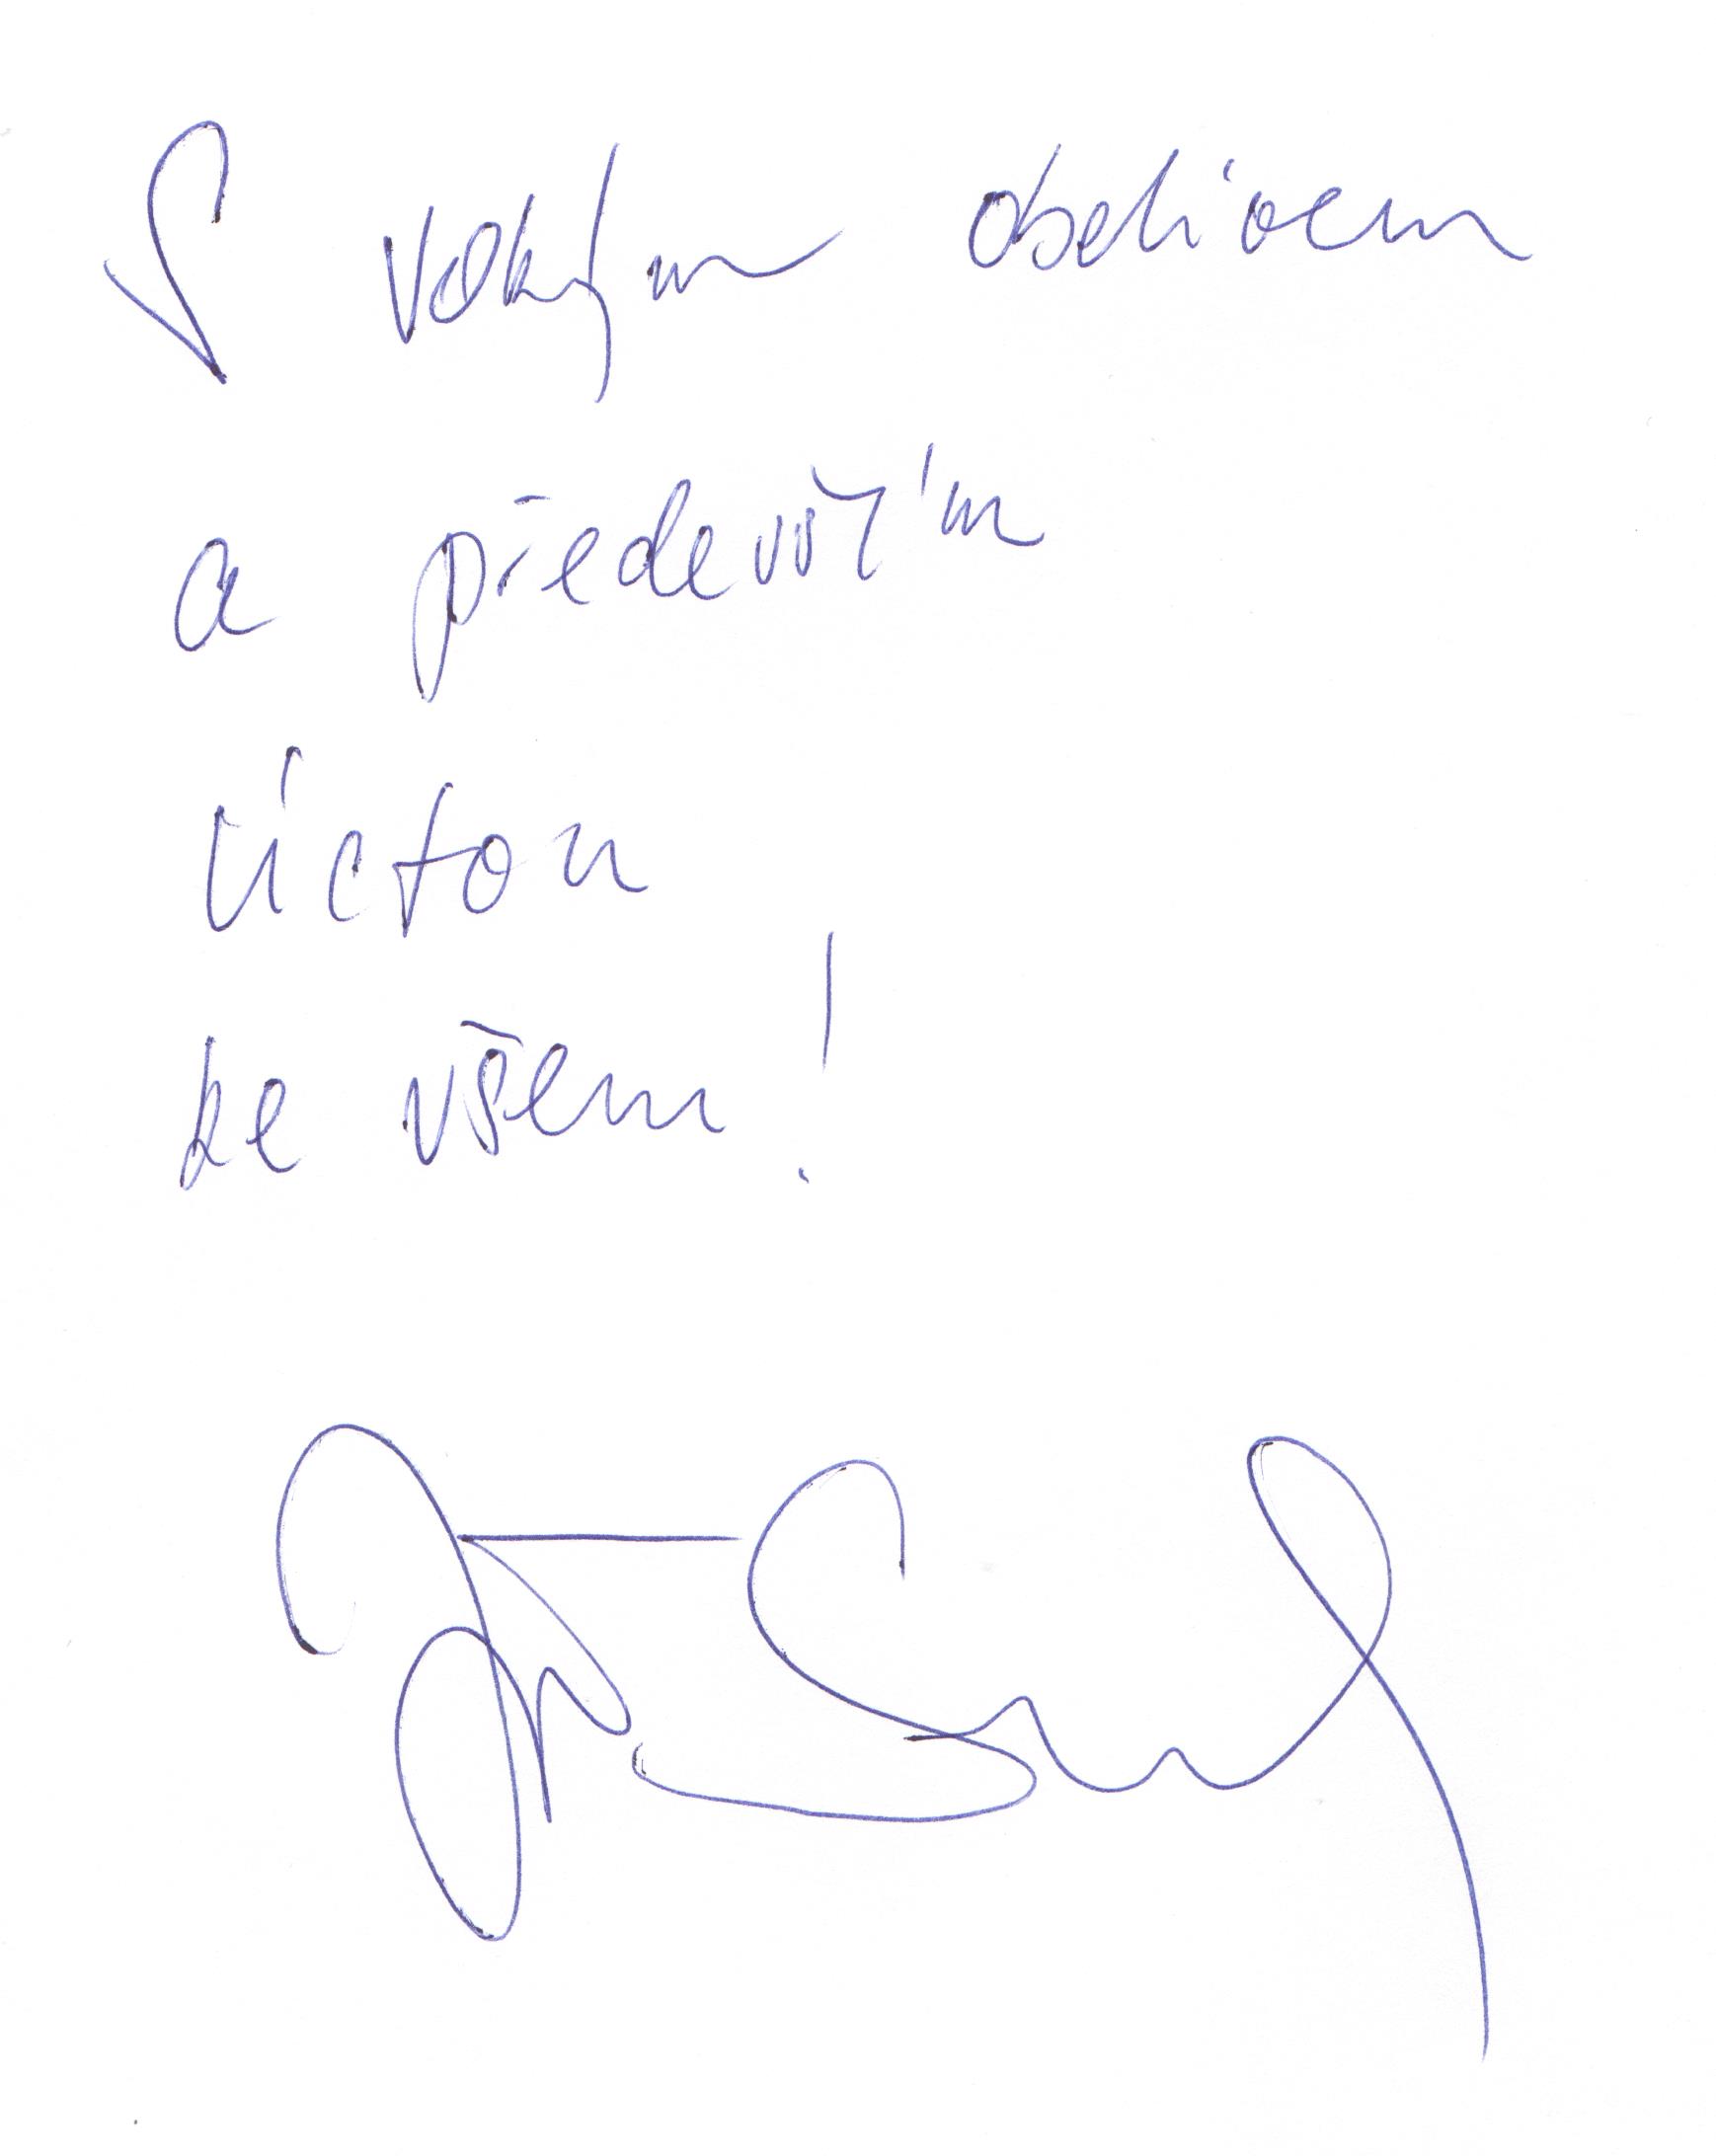 S velkým obdivem
a především
úctou
ke všem!